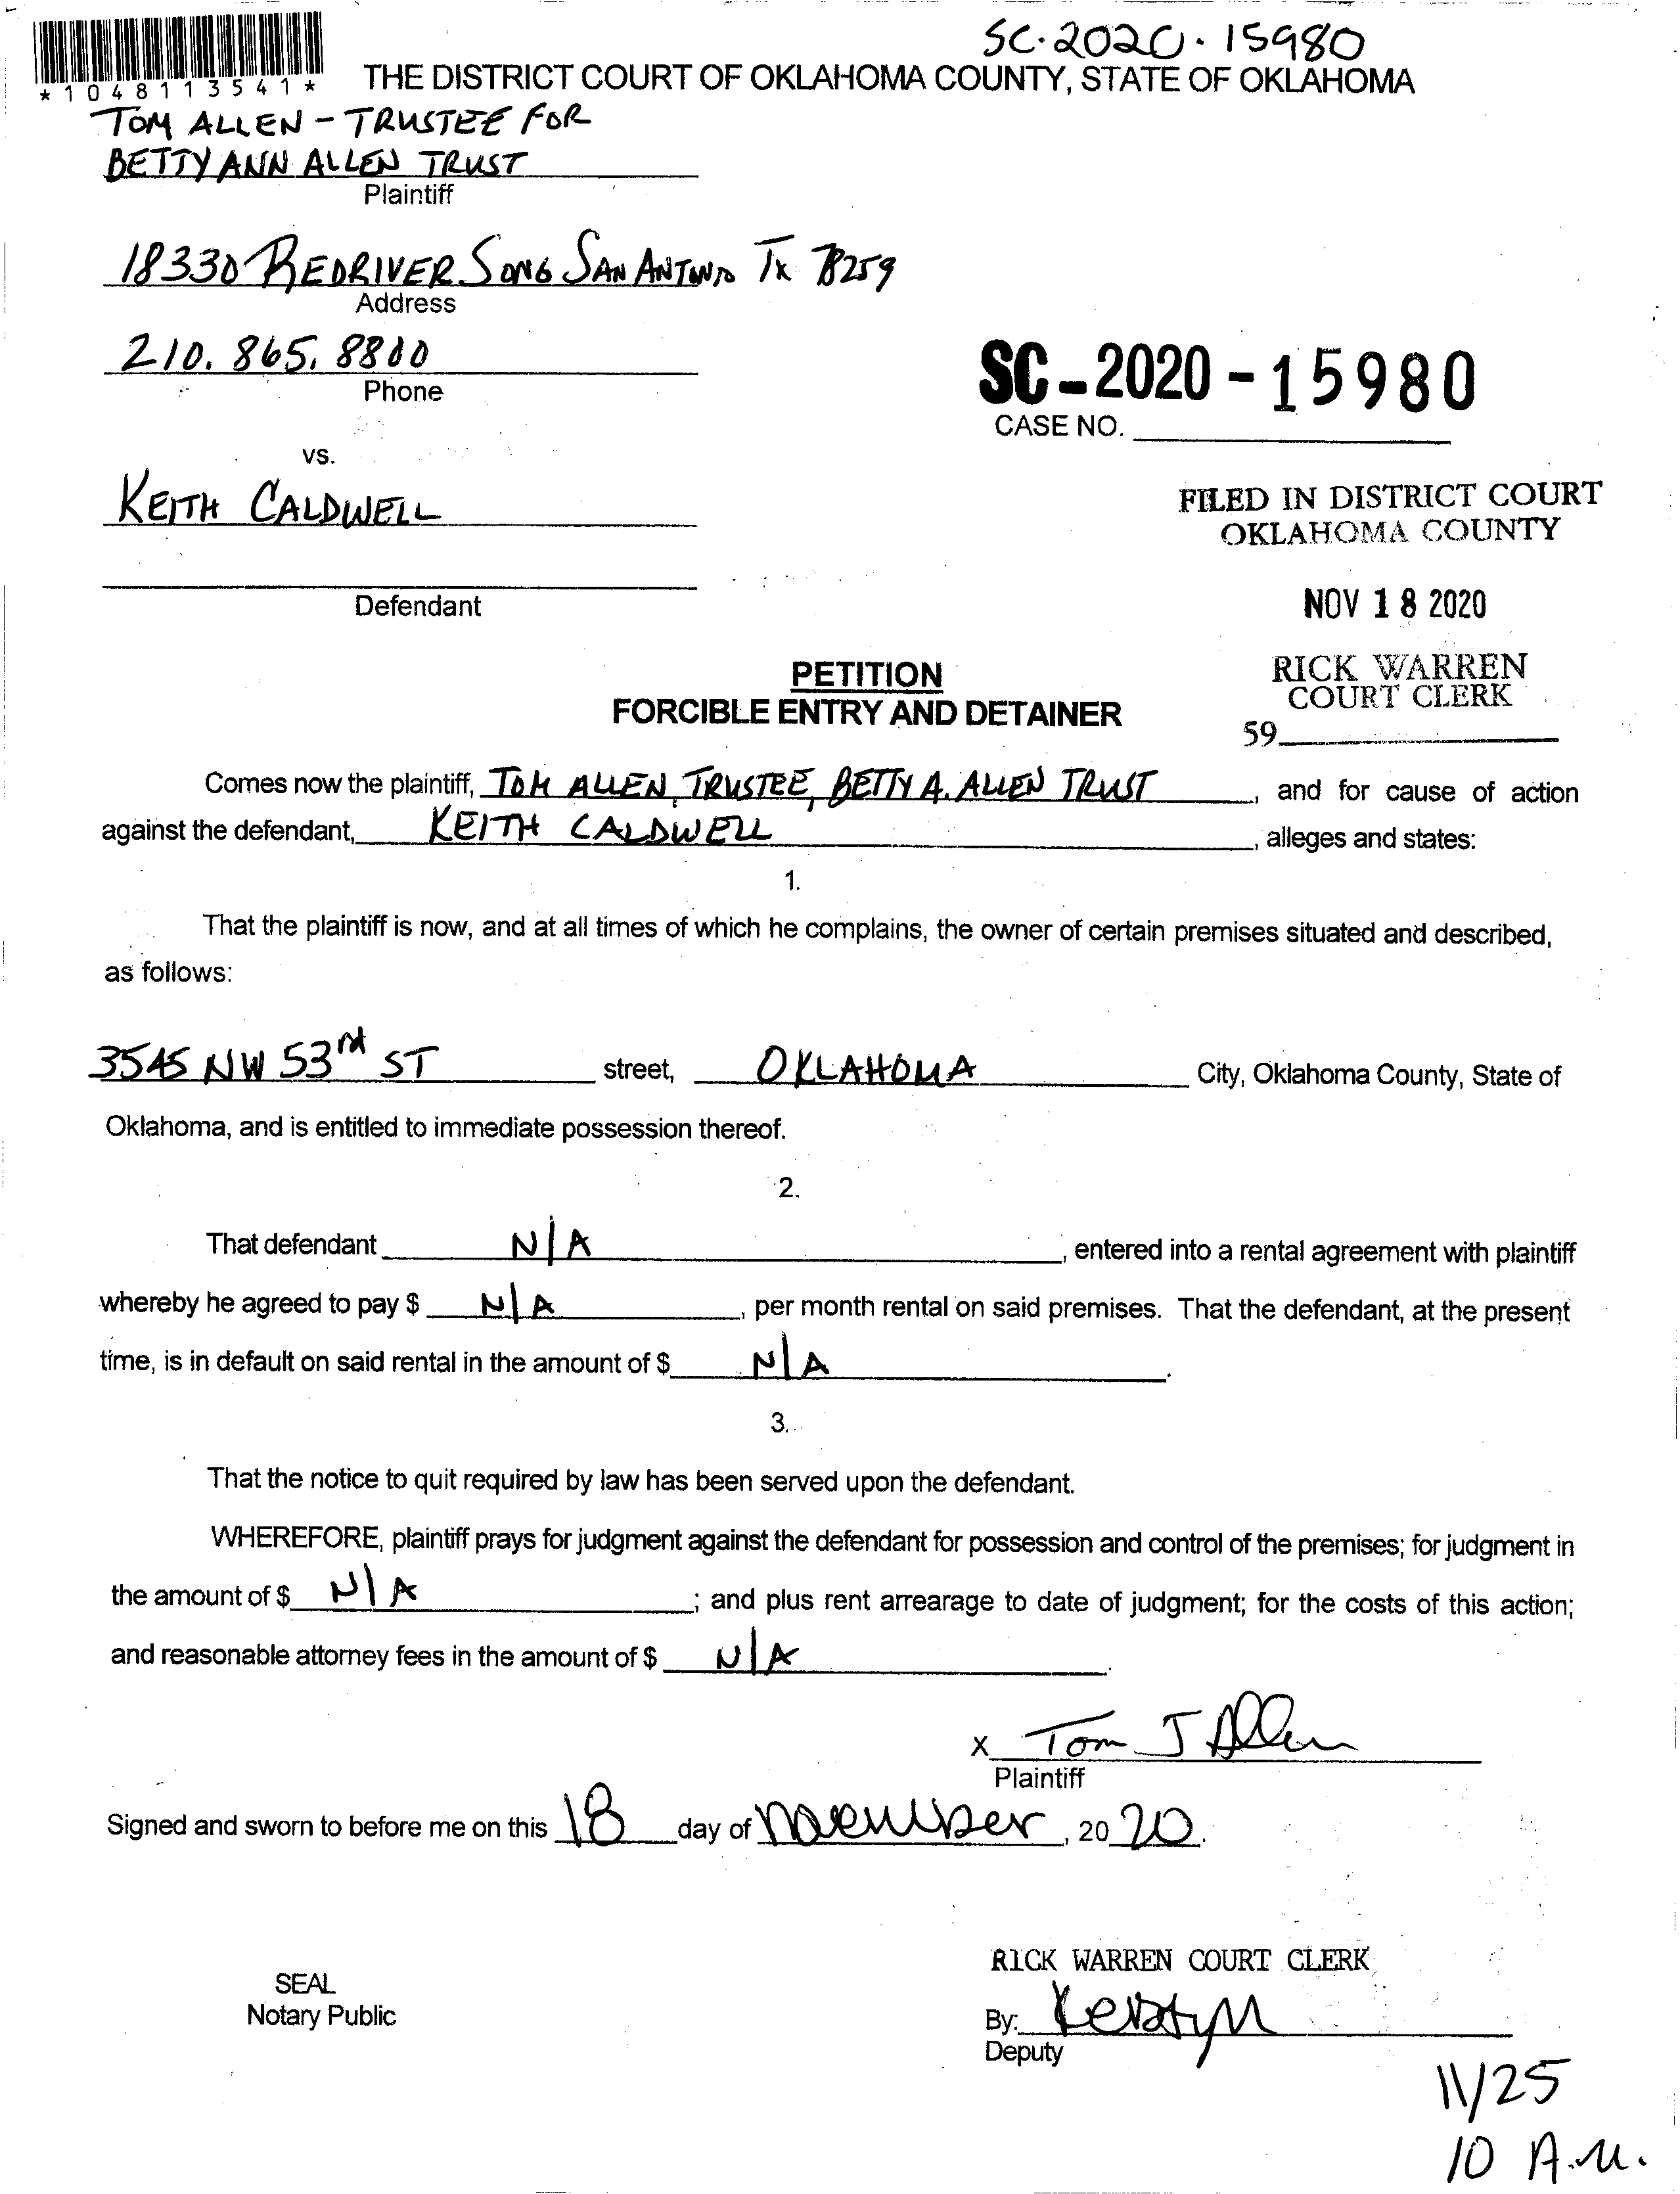 SC-2020-15980
*1048113541*
THE DISTRICT COURT OF OKLAHOMA COUNTY, STATE OF OKLAHOMA
TOM ALLEN - TRUSTEE FOR
BETTY ANN ALLEN TRUST
Plaintiff
18330 REDRIVER SONG SAN ANTONIO TX 78259
Address
210. 865. 8800
Phone
SC-2020-15980
CASE NO.
vs.
KEITH CALDWELL
FILED IN DISTRICT COURT
OKLAHOMA COUNTY
Defendant
NOV 18 2020
PETITION
FORCIBLE ENTRY AND DETAINER
RICK WARREN
COURT CLERK
59
Comes now the plaintiff, TOM ALLEN, TRUSTEE, BETTY A. ALLEN TRUST, and for cause of action
against the defendant, KEITH CALDWELL, alleges and states:
1.
That the plaintiff is now, and at all times of which he complains, the owner of certain premises situated and described,
as follows:
3545 NW 53rd ST street, OKLAHOMA City, Oklahoma County, State of
Oklahoma, and is entitled to immediate possession thereof.
2.
That defendant N/A, entered into a rental agreement with plaintiff
whereby he agreed to pay $ N/A, per month rental on said premises. That the defendant, at the present
time, is in default on said rental in the amount of $ N/A.
3.
That the notice to quit required by law has been served upon the defendant.
WHEREFORE, plaintiff prays for judgment against the defendant for possession and control of the premises; for judgment in
the amount of $ N/A; and plus rent arrearage to date of judgment; for the costs of this action;
and reasonable attorney fees in the amount of $ N/A.
X Tom J Allen
Plaintiff
Signed and sworn to before me on this 18 day of November, 2020.
RICK WARREN COURT CLERK
SEAL
Notary Public
By:
Deputy
11/25
10 A.M.